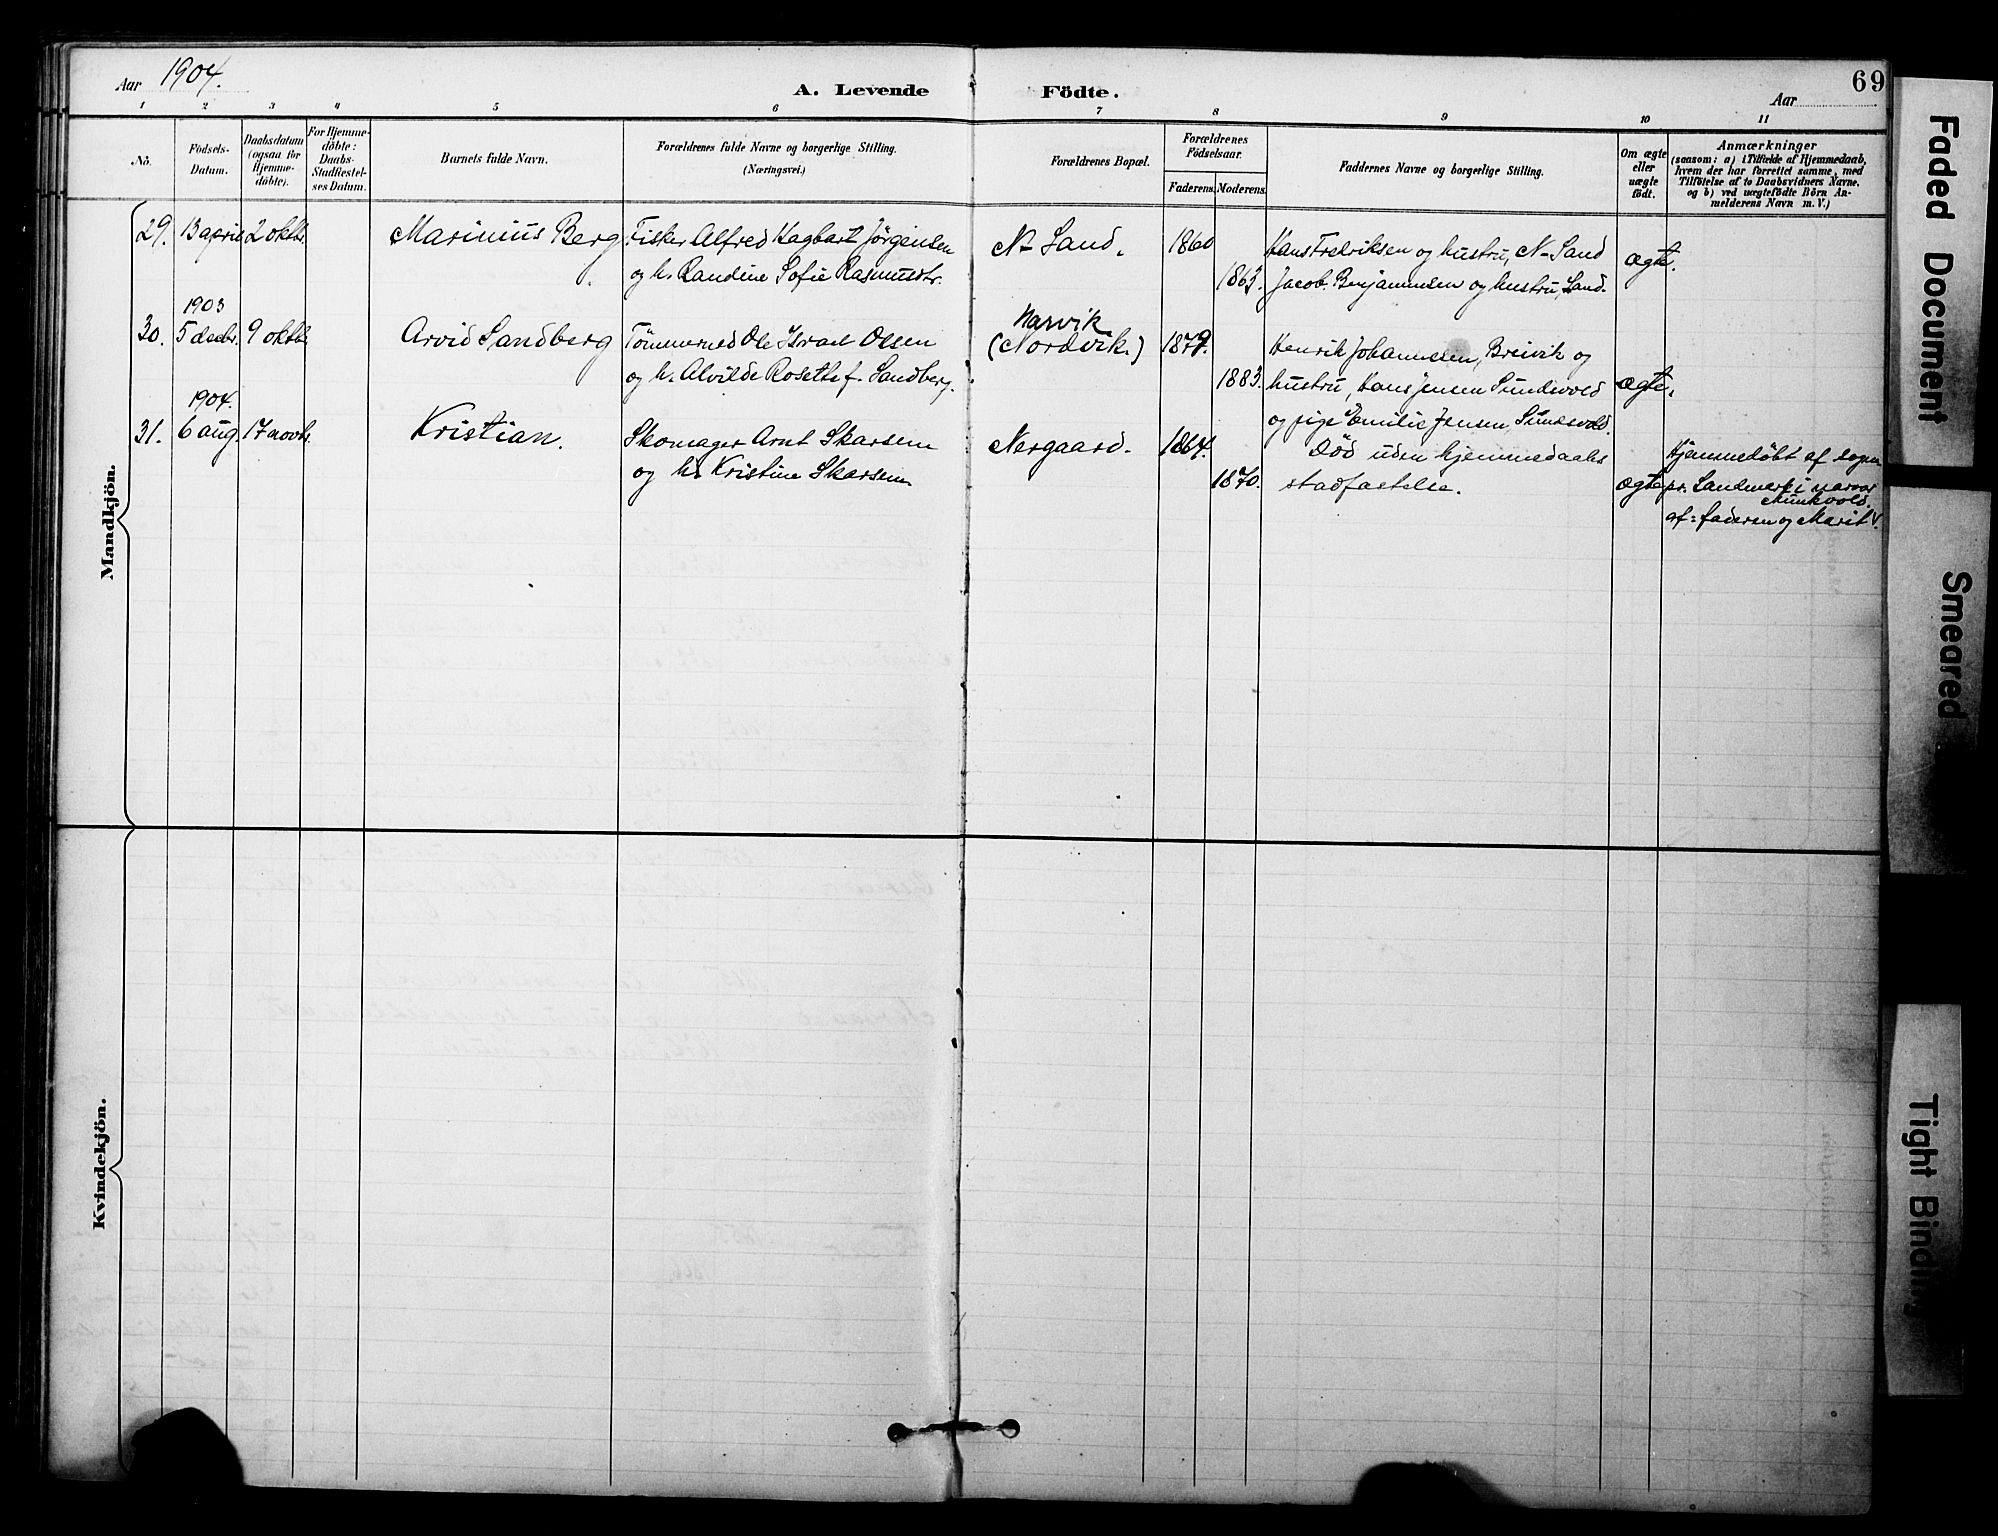 Aar 1904.
A. Levende Födte.
Aar
69
1 2 3 4 5 6 7 8 9 10 11
No.
Födsels-
Datum.
Daabsdatum
(ogsaa for
Hjemme-
döbte).
For Hjemme-
döbte:
Daabs-
Stadfæstel-
ses Datum.
Barnets fulde Navn.
Forældrenes fulde Navne og borgerlige Stilling.
(Næringsvei.)
Forældrenes Bopæl.
Forældrenes
Födselsaar.
Faderens. Moderens.
Faddernes Navne og borgerlige Stilling.
Om ægte
eller
uægte
födt.
Anmærkninger
(saasom: a) i Tilfælde af Hjemmedaab,
hvem der har forrettet samme, med
Tilföielse af to Daabsvidners Navne,
og b) ved uægtefödte Börn An-
melderens Navn m. V.)
Mandkjön.
29. 13 april 2 oktbr. Marinius Berg Fisker Alfred Hagbart Jørgensen N-Sand. 1860 Hans Fredriksen og hustru, N-Sand ægte.
og h. Randine Sofie Rasmusdtr. 1863. Jacob Benjaminsen og hustru, Sand.
1903
30. 5 decbr. 9 oktbr. Arvid Sandberg Tömmermd Ole Israel Olsen Narvik
(Nordvik.) 1879. Henrik Johannessen, Breivik og
og h. Alvilde Rosethe f. Sandberg. 1883. hustru, Hans Jensen Sundsvold ægte.
og pige Emilie Jensen Sundsvold.
1904.
31. 6 aug. 17 novbr. Kristian. Skomager Arnt Skarsem Nergaard. 1864. Död uden hjemmedaabs
og h. Kristine Skarsem 1870. stadfæstelse. ægte
Hjemmedöbt af sogne
pr. Landmark i nærvær
af: faderen og Marit V.
Munkvold.
Kvindekjön.
Faded Document
Smeared
Tight Binding